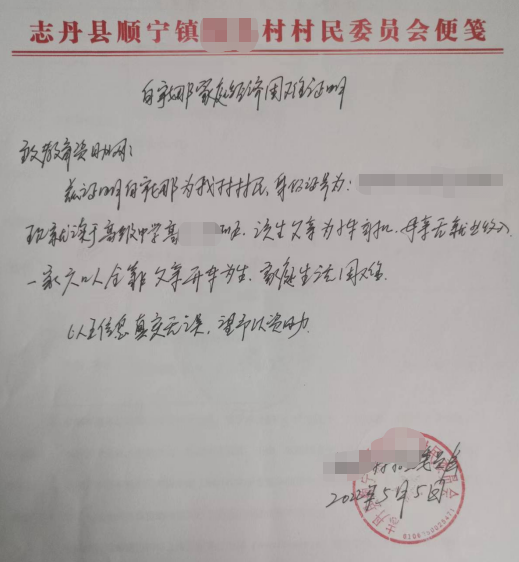 志丹县顺宁镇村村民委员会便笺
家庭经济困难证明
致教育资助网:
兹证明白 娜为我村村民,身份证号为:
现就读于高级中学高 班。该生父亲为 司机,母亲无就业收入
一家六口人全靠父亲开车为生,家庭生活困难
以上信息真实无误,望予以资助
2022年5月5日